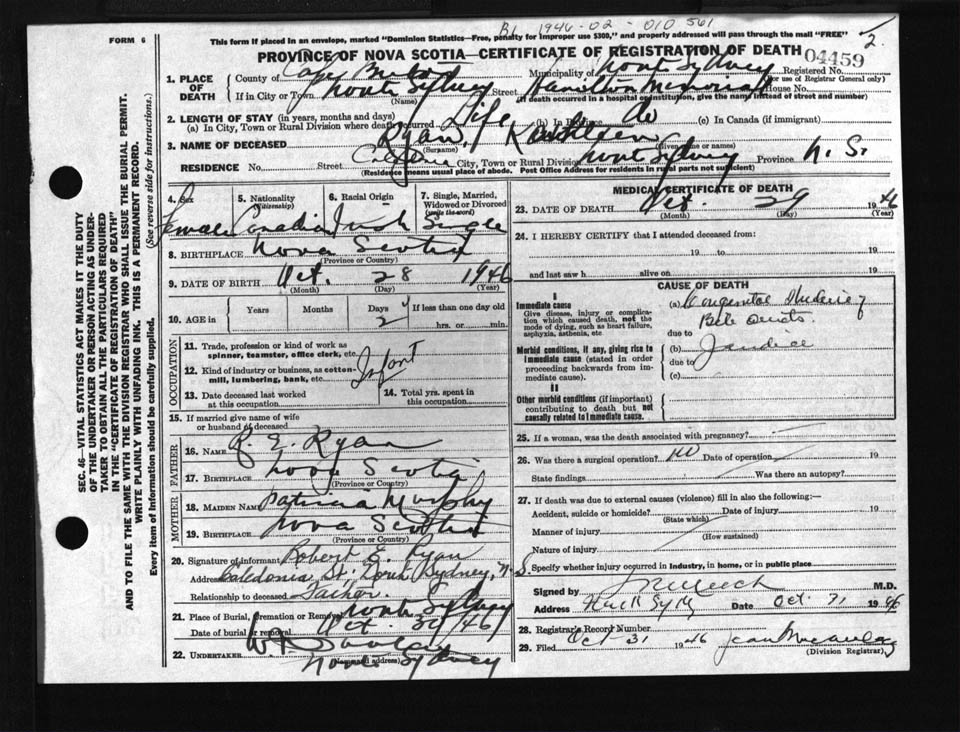 BK 1946-02-010561
2.
FORM 6
This form if placed in an envelope, marked "Dominion Statistics—Free, penalty for improper use $300," and properly addressed will pass through the mail "FREE"
PROVINCE OF NOVA SCOTIA—CERTIFICATE OF REGISTRATION OF DEATH
04459
1. PLACE OF DEATH
County of Cape Breton Municipality of North Sydney Registered No.
(For use of Registrar General only)
If in City or Town North Sydney Street Hamilton Memorial House No.
(Name) (If death occurred in a hospital or institution, give the name instead of street and number)
2. LENGTH OF STAY (in years, months and days)
(a) In City, Town or Rural Division where death occurred Life (b) In Province do (c) In Canada (if immigrant)
3. NAME OF DECEASED Ryan, Kathleen
(Surname) (Given name or names)
RESIDENCE No. Street City, Town or Rural Division North Sydney Province N. S.
(Residence means usual place of abode. Post Office Address for residents in rural parts not sufficient)
4. Sex Female
5. Nationality (Citizenship) Canadian
6. Racial Origin Irish
7. Single, Married, Widowed or Divorced (write the word) Single
8. BIRTHPLACE Nova Scotia
(Province or Country)
9. DATE OF BIRTH Oct. 28 1946
(Month) (Day) (Year)
10. AGE in Years Months Days 2 If less than one day old
hrs. or min.
OCCUPATION
11. Trade, profession or kind of work as spinner, teamster, office clerk, etc.
12. Kind of industry or business, as cotton-mill, lumbering, bank, etc. Infant
13. Date deceased last worked at this occupation
14. Total yrs. spent in this occupation
15. If married give name of wife or husband of deceased
FATHER
16. NAME R. E. Ryan
17. BIRTHPLACE Nova Scotia
(Province or Country)
MOTHER
18. MAIDEN NAME Patricia Murphy
19. BIRTHPLACE Nova Scotia
(Province or Country)
20. Signature of informant Robert E. Ryan
Address Caledonia St. North Sydney, N.S.
Relationship to deceased Father.
21. Place of Burial, Cremation or Removal North Sydney
Date of burial or removal Oct. 30/46
22. UNDERTAKER
(Name and address) North Sydney
MEDICAL CERTIFICATE OF DEATH
23. DATE OF DEATH Oct. 29 1946
(Month) (Day) (Year)
24. I HEREBY CERTIFY that I attended deceased from:
19 to 19
and last saw h alive on 19
CAUSE OF DEATH
I
Immediate cause
Give disease, injury or complication which caused death, not the mode of dying, such as heart failure, asphyxia, asthenia, etc
(a) Congenital
Bile Ducts
due to
Morbid conditions, if any, giving rise to immediate cause (stated in order proceeding backwards from immediate cause).
(b) Jaundice
due to
(c)
II
Other morbid conditions (if important) contributing to death but not causally related to immediate cause.
25. If a woman, was the death associated with pregnancy?
26. Was there a surgical operation? no Date of operation 19
State findings Was there an autopsy?
27. If death was due to external causes (violence) fill in also the following:—
Accident, suicide or homicide? Date of injury 19
(State which)
Manner of injury
(How sustained)
Nature of injury
Specify whether injury occurred in Industry, in home, or in public place
Signed by M.D.
Address North Syd Date Oct. 31 1946
28. Registrar's Record Number
29. Filed Oct 31 1946 Jean Macaulay
(Division Registrar)
SEC. 46—VITAL STATISTICS ACT MAKES IT THE DUTY
OF THE UNDERTAKER OR PERSON ACTING AS UNDER-
TAKER TO OBTAIN ALL THE PARTICULARS REQUIRED
IN THE "CERTIFICATE OF REGISTRATION OF DEATH"
AND TO FILE THE SAME WITH THE DIVISION REGISTRAR WHO SHALL ISSUE THE BURIAL PERMIT.
WRITE PLAINLY WITH UNFADING INK. THIS IS A PERMANENT RECORD.
Every item of Information should be carefully supplied. (See reverse side for instructions.)